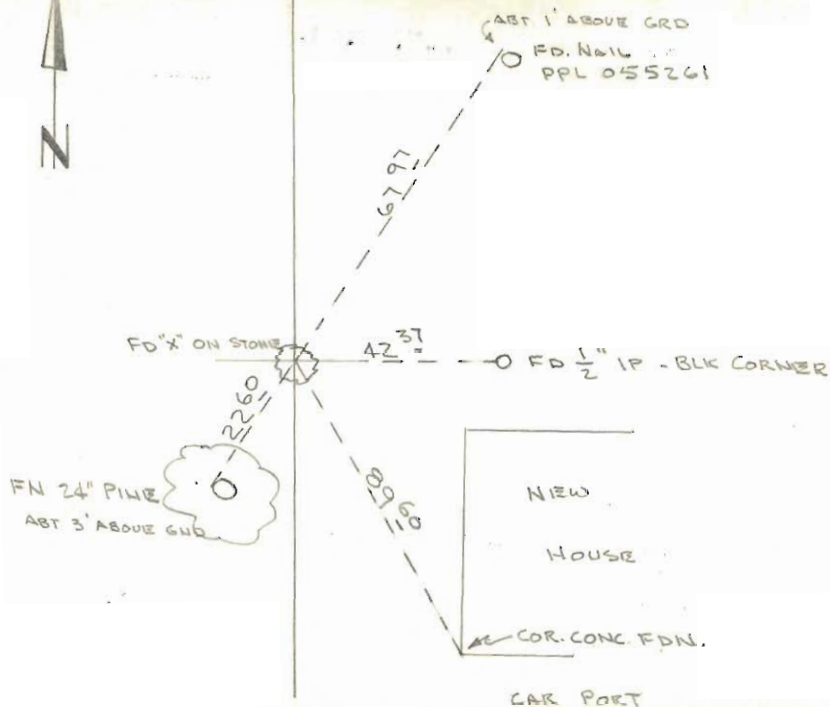 N
ABT 1' ABOVE GRD
FD. NAIL
PPL 055261
67 97
FD "X" ON STONE
42 37
FD 1/2" IP - BLK CORNER
22 60
FN 24" PINE
ABT 3' ABOVE GND
89 60
NEW
HOUSE
COR. CONC. FDN.
CAR PORT